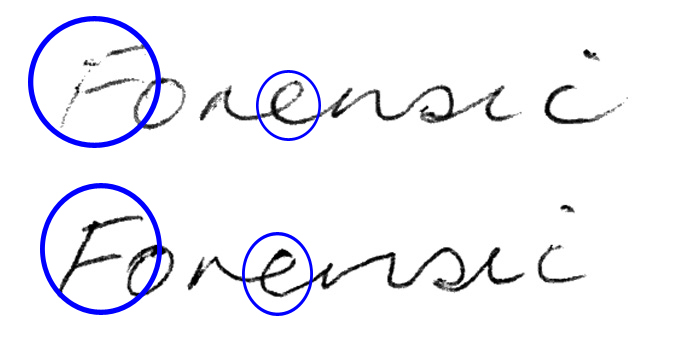 Forensic
Forensic